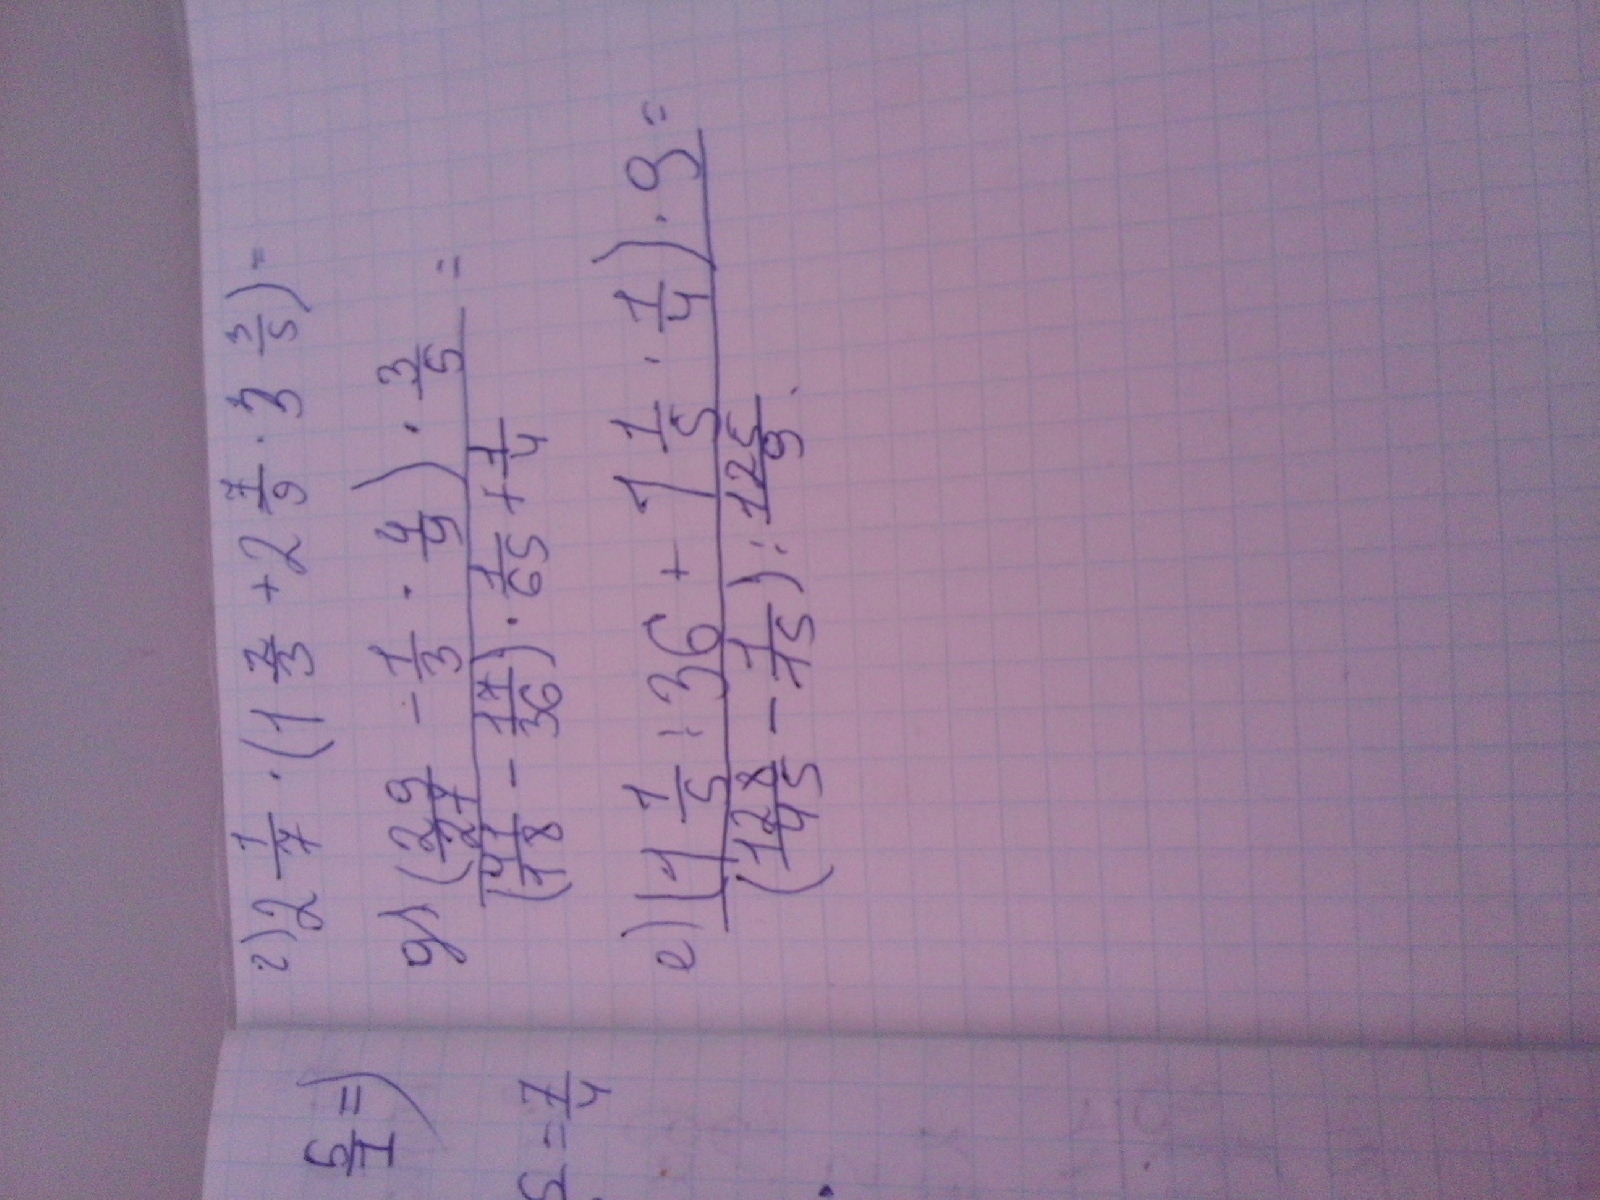 г) 2 1/7 · (1 2/3 + 2 7/9 · 3 3/5) =
д) ((29/27 - 1/3 · 4/9) · 3/5) / ((41/18 - 17/36) · 1/65 + 1/4) =
е) ((1 1/5 : 36 + 1 1/5 · 1/4) · 9) / ((128/45 - 1/15) : 125/9) =
5/1 =)
= 7/4